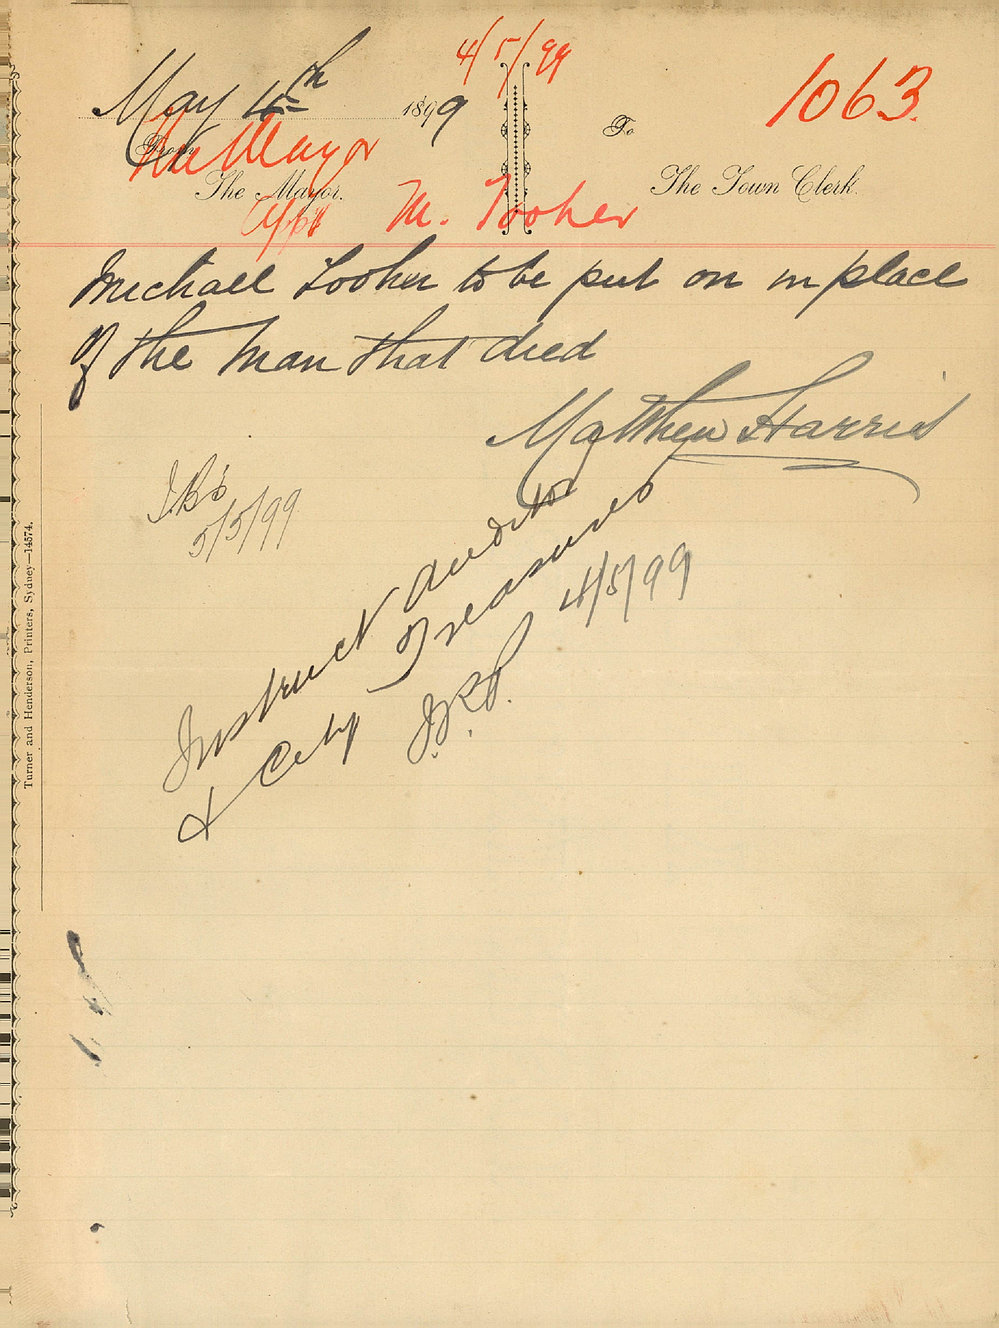 4/5/99
1063.
May 4th 1899
The Mayor
From
To
The Mayor.
The Town Clerk.
M. Tooher
Michael Tooher to be put on in place
of the Man that died
Matthew Harris
5/5/99
Instruct Auditor
& City Treasurer
4/5/99
Turner and Henderson, Printers, Sydney—14574.